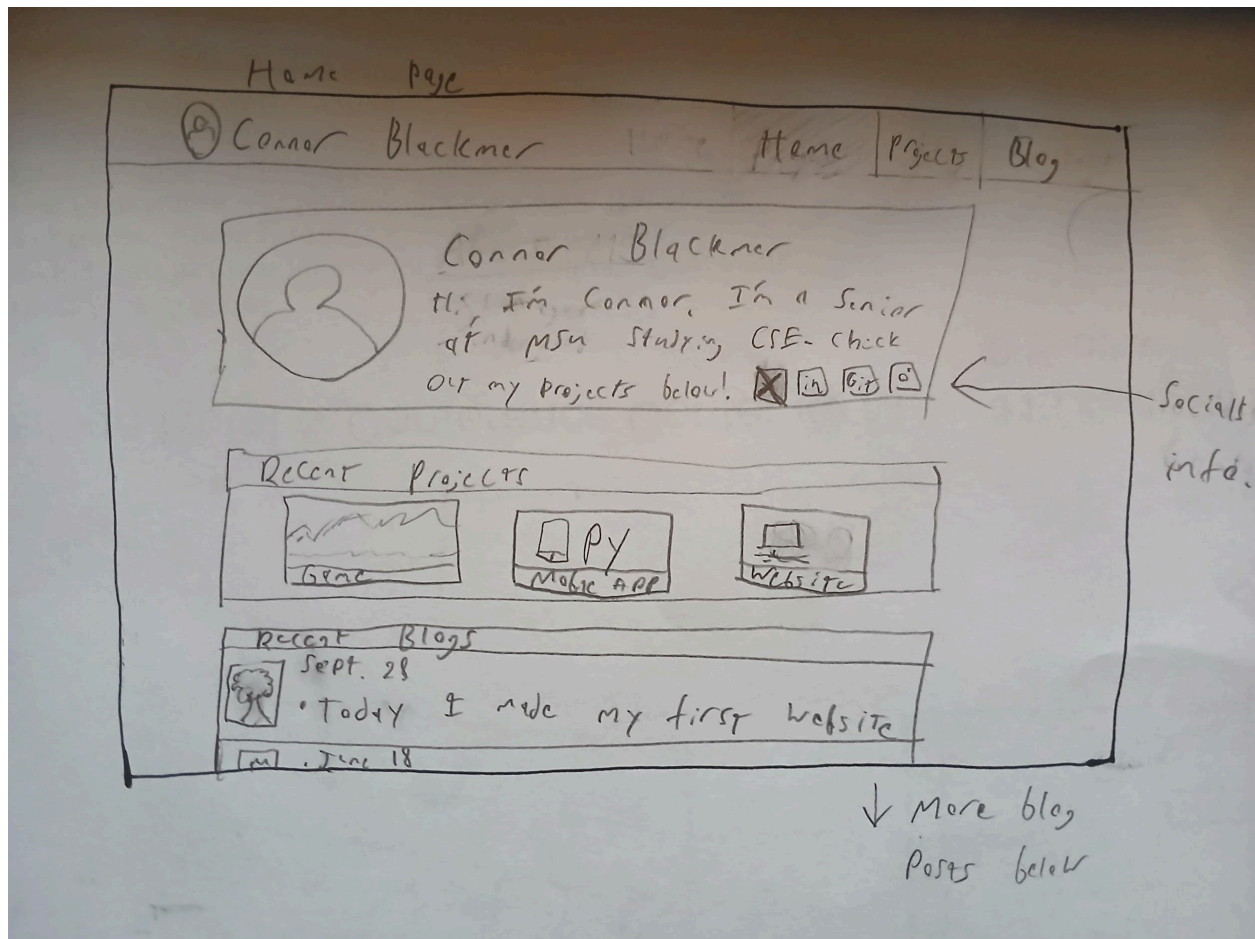 Home Page
Connor Blackmer Home Projects Blog
Connor Blackmer
Hi, I'm Connor. I'm a Senior
at MSU Studying CSE. Check
Out my projects below! X in Git
Socials
info.
Recent Projects
PY
Game Mobile APP Website
Recent Blogs
Sept. 28
• Today I made my first website
• June 18
↓ More blog
Posts below